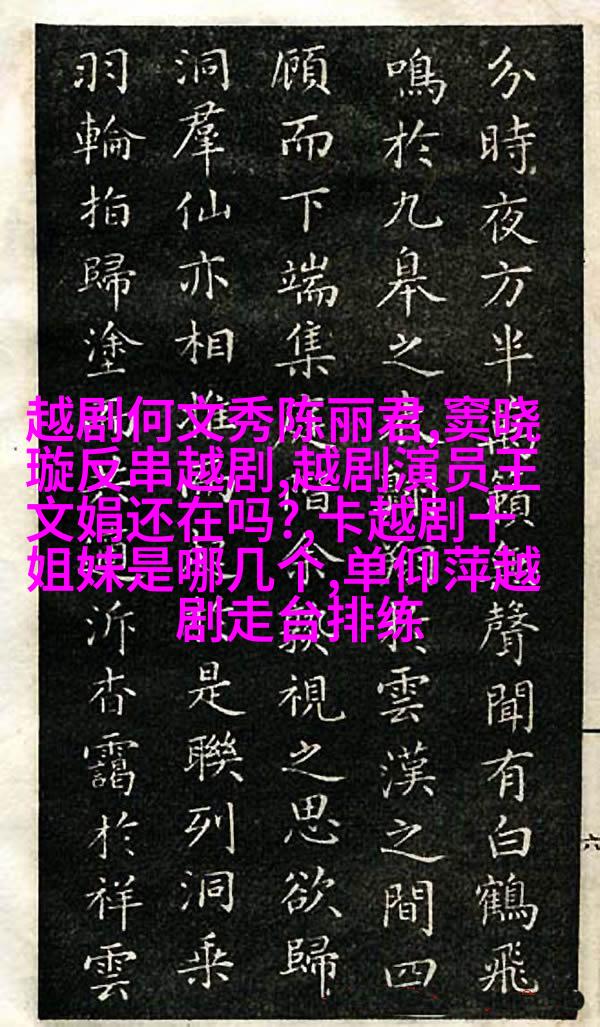 分時夜方半籟聲聞有白鶴飛
鳴於九皋之於雲漢之間四
顧而下端集視之思欲歸
洞羣仙亦相是聯列洞乘
羽輪拍歸塗泝杏靄於祥雲
越剧何文秀陈丽君,窦晓
璇反串越剧,越剧演员王
文娟还在吗?,卡越剧十
姐妹是哪几个,单仰萍越
剧走台排练
六